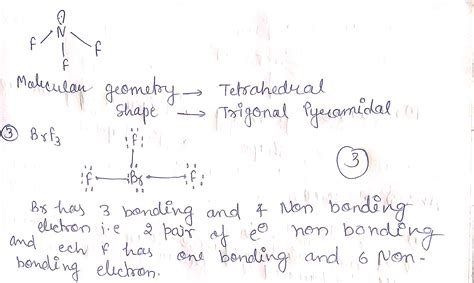 N
F F
F
Molecular geometry → Tetrahedral
Shape → Trigonal Pyramidal
③ BrF₃
F
F Br F
③
Br has 3 bonding and 4 Non bonding
electron i.e 2 pair of e⊖ non bonding
and ech F has one bonding and 6 Non-
bonding electron.